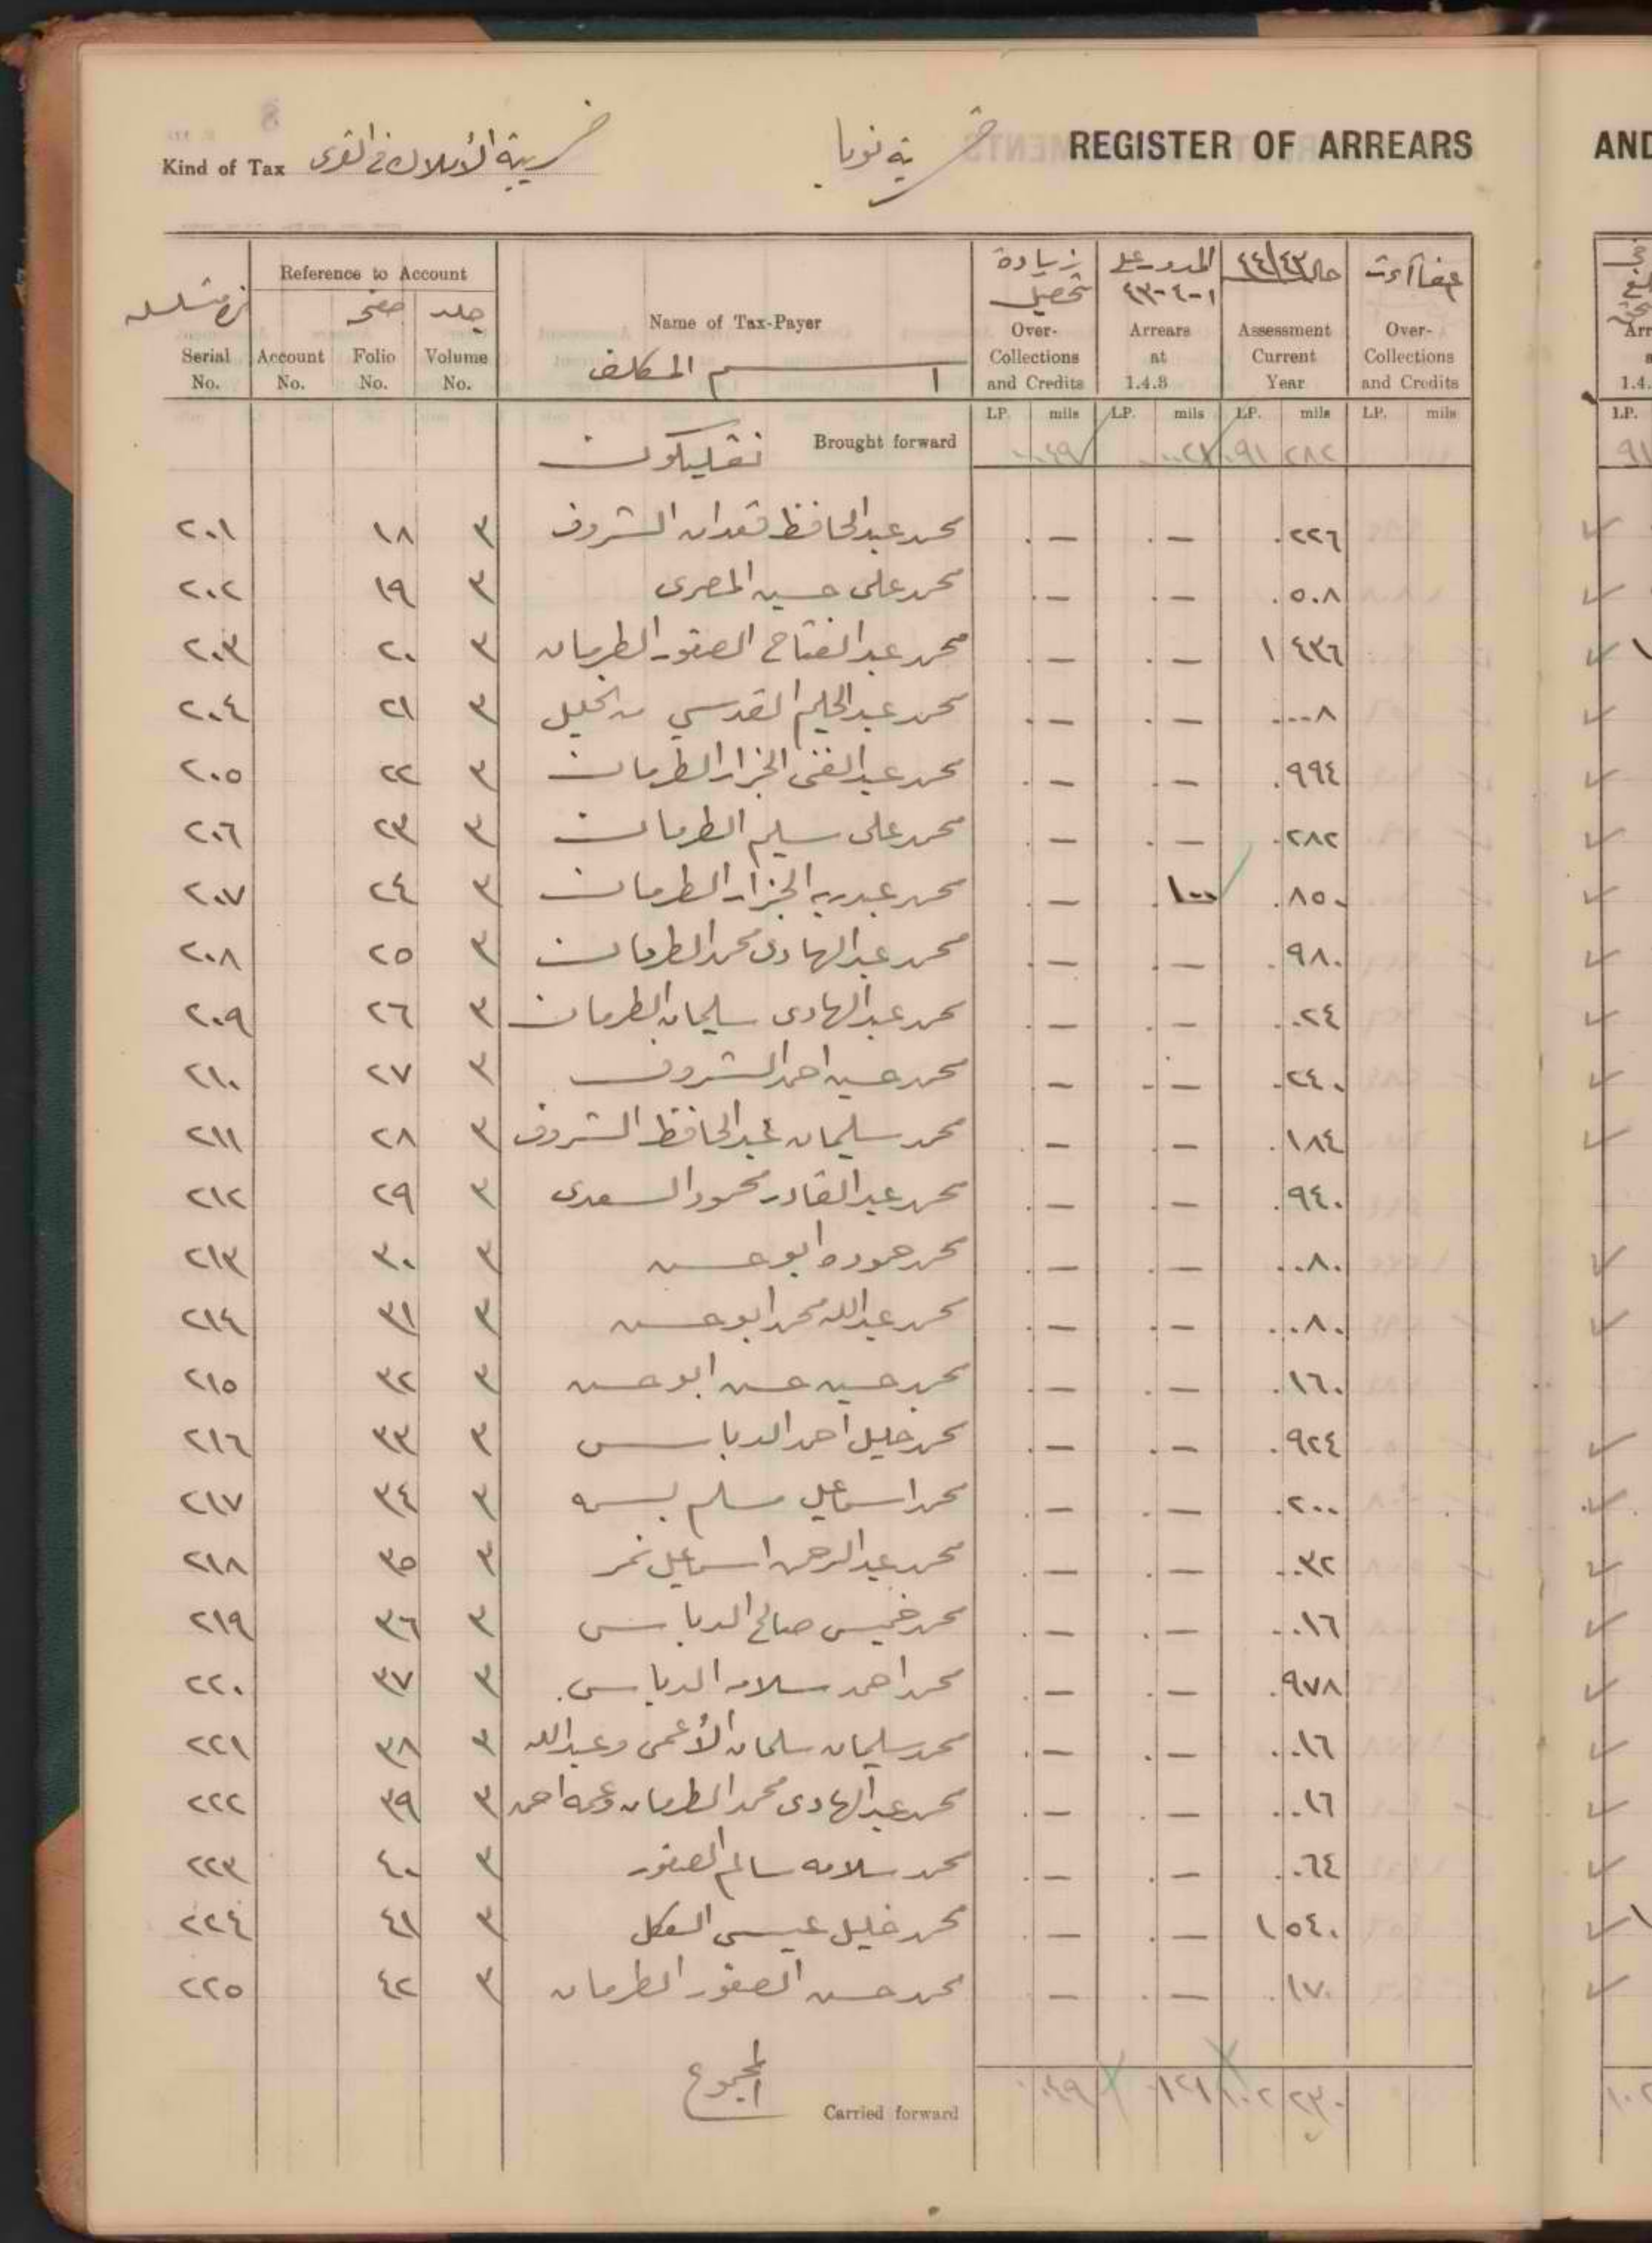 REGISTER OF ARREARS
قرية نوبا
Kind of Tax ضريبة الأملاك في القرى
Serial No.
Reference to Account
Account No.
صفحه Folio No.
جلد Volume No.
Name of Tax-Payer
اسم المكلف
زيادة تحصيل
Over-Collections and Credits
المدور على ١-٤-٤٣
Arrears at 1.4.8
حال ٤٤/٤٣
Assessment Current Year
Over-Collections and Credits
LP. mils LP. mils LP. mils LP. mils
Brought forward ٠٤٩ ٠٠٢١ ٩١ ٢٨٢
٢٠١ ١٨ ٣ محمد عبدالحافظ قعدان الشروف ٠ — ٠ — ٠ ٢٢٦
٢٠٢ ١٩ ٣ محمد علي حسين المصري ٠ — ٠ — ٠ ٥٠٨
٢٠٣ ٢٠ ٣ محمد عبدالفتاح الصقور الطرمان ٠ — ٠ — ١ ٤٣٦
٢٠٤ ٢١ ٣ محمد عبدالحليم القدسي من الخليل ٠ — ٠ — ٠ ٠٠٨
٢٠٥ ٢٢ ٣ محمد عبدالغني الجزار الطرمان ٠ — ٠ — ٠ ٩٩٤
٢٠٦ ٢٣ ٣ محمد علي سليم الطرمان ٠ — ٠ — ٠ ٢٨٢
٢٠٧ ٢٤ ٣ محمد عبدربه الجزار الطرمان ٠ — ٠ ١٠٠ ٠ ٨٥٠
٢٠٨ ٢٥ ٣ محمد عبدالهادي محمد الطرمان ٠ — ٠ — ٠ ٩٨٠
٢٠٩ ٢٦ ٣ محمد عبدالهادي سليمان الطرمان ٠ — ٠ — ٠ ٠٢٤
٢١٠ ٢٧ ٣ محمد حسين احمد الشروف ٠ — ٠ — ٠ ٢٤٠
٢١١ ٢٨ ٣ محمد سليمان عبدالحافظ الشروف ٠ — ٠ — ٠ ١٨٤
٢١٢ ٢٩ ٣ محمد عبدالقادر محمود السعدي ٠ — ٠ — ٠ ٩٤٠
٢١٣ ٣٠ ٣ محمد حموده ابو حسن ٠ — ٠ — ٠ ٠٨٠
٢١٤ ٣١ ٣ محمد عبدالله محمد ابو حسن ٠ — ٠ — ٠ ٠٨٠
٢١٥ ٣٢ ٣ محمد حسين حسن ابو حسن ٠ — ٠ — ٠ ١٦٠
٢١٦ ٣٣ ٣ محمد خليل احمد الدبابس ٠ — ٠ — ٠ ٩٢٤
٢١٧ ٣٤ ٣ محمد اسماعيل مسلم ٠ — ٠ — ٠ ٢٠٠
٢١٨ ٣٥ ٣ محمد عبدالرحمن اسماعيل نمر ٠ — ٠ — ٠ ٠٣٢
٢١٩ ٣٦ ٣ محمد خميس صالح الدبابس ٠ — ٠ — ٠ ٠١٦
٢٢٠ ٣٧ ٣ محمد احمد سلامه الدبابس ٠ — ٠ — ٠ ٩٧٨
٢٢١ ٣٨ ٣ محمد سليمان سلمان الأعمى وعبدالله ٠ — ٠ — ٠ ٠١٦
٢٢٢ ٣٩ ٣ محمد عبدالهادي محمد الطرمان وعمه احمد ٠ — ٠ — ٠ ٠١٦
٢٢٣ ٤٠ ٣ محمد سلامه سالم الصقور ٠ — ٠ — ٠ ٠٦٤
٢٢٤ ٤١ ٣ محمد خليل عيسى ٠ — ٠ — ١ ٥٤٠
٢٢٥ ٤٢ ٣ محمد حسن الصقور الطرمان — ٠ — ٠ ١٧٠
المجموع
Carried forward ٠٤٩ ١٢١ ١٠٢ ٢٣٠